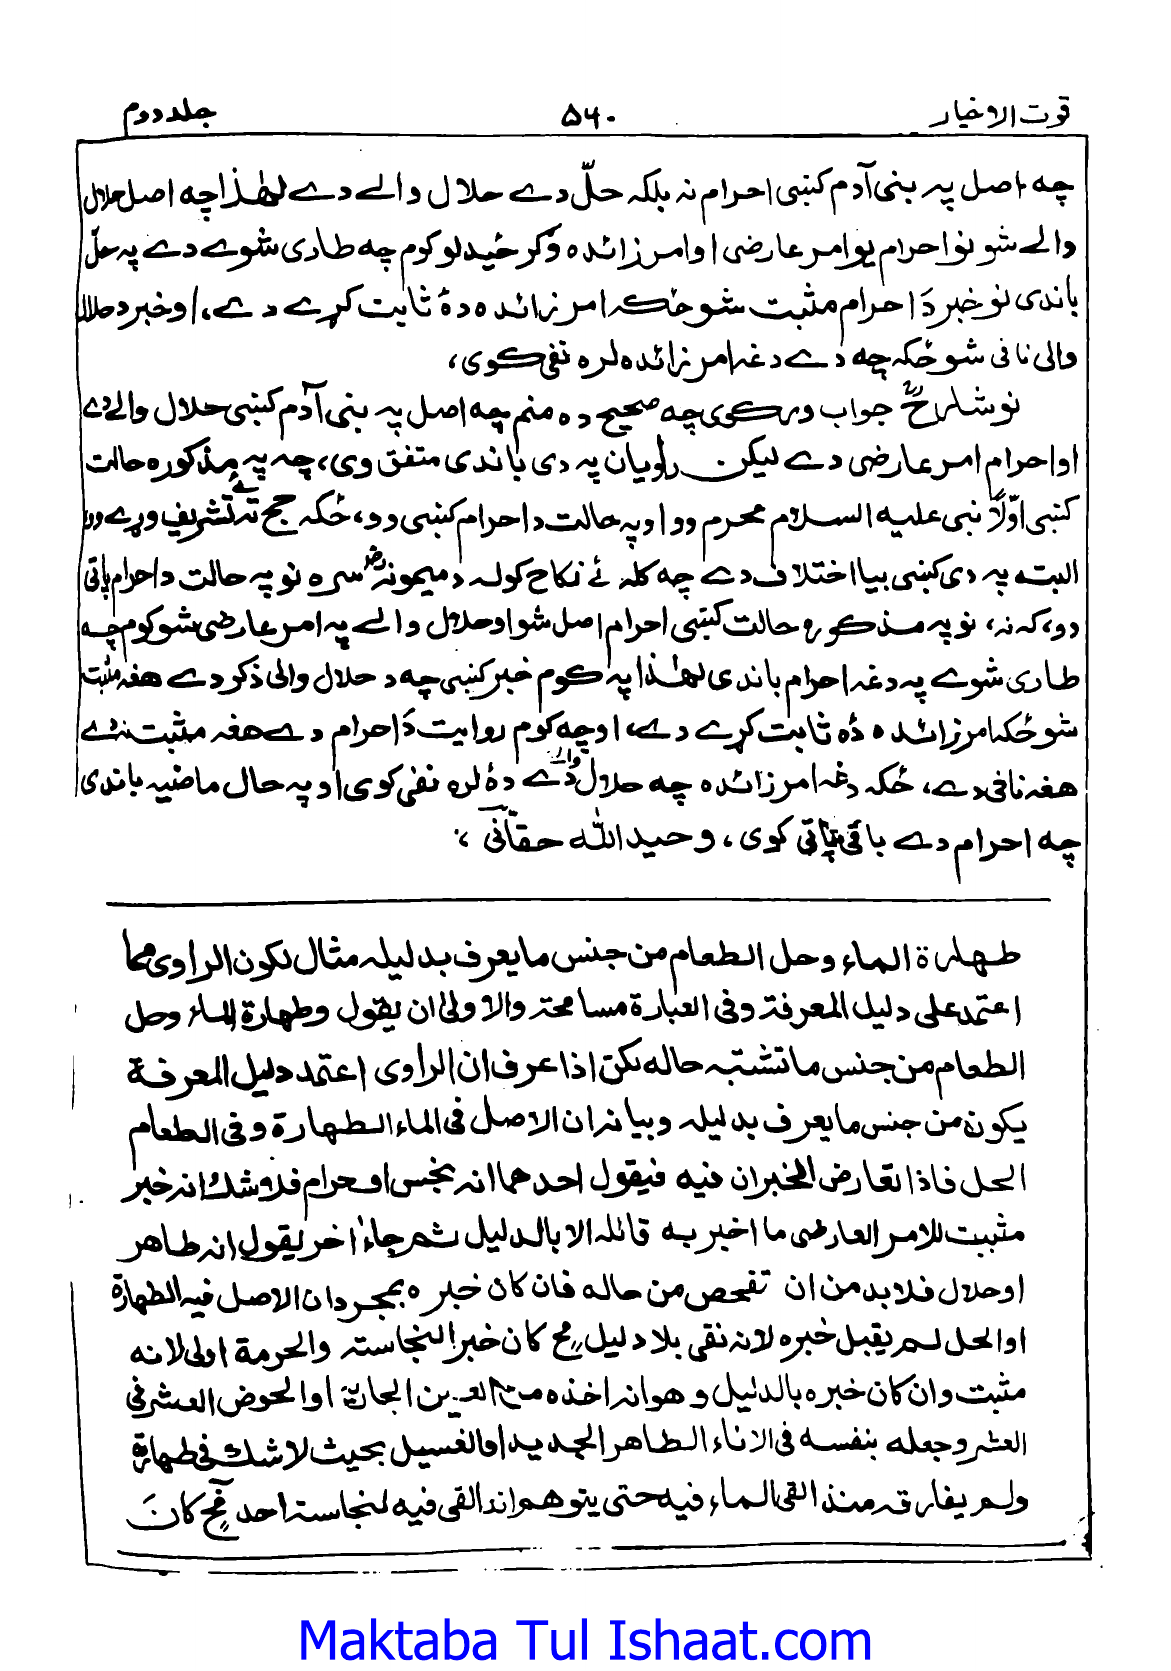 قوت الاخیار ۵۶۰ جلد دوم
چه اصل په بنی آدم کښی احرام نه بلکه حلّ دے حلال والے دے لهٰذا چه اصل حلال
والے شو نو احرام یو امر عارضی او امر زائده وګرځیدلو کوم چه طاری شوے دے په حلّ
باندی نو خبر دَ احرام مثبت شو ځکه امر زائده دهٔ ثابت کړے دے، او خبر د حلال
والی نافی شو ځکه چه دے دغه امر زائده لره نفی کوی،
نو شارحؒ جواب ورکوی چه صحیح ده منم چه اصل په بنی آدم کښی حلال والے دے
او احرام امر عارضی دے لیکن راویان په دی باندی متفق وی، چه په مذکوره حالت
کښی اوّلاً نبی علیه السلام محرم وو او په حالت د احرام کښی وو، ځکه حج ته ئے تشریف وړے وو
البته په دی کښی بیا اختلاف دے چه کله ئے نکاح کوله د میمونهؓ سره نو په حالت د احرام باقی
وو، که نه، نو په مذکوره حالت کښی احرام اصل شو او حلال والے په امر عارضی شو کوم چه
طاری شوے په دغه احرام باندی لهٰذا په کوم خبر کښی چه د حلال والی ذکر دے هغه مثبت
شو ځکه امر زائده دهٔ ثابت کړے دے، او چه کوم روایت دَ احرام دے هغه مثبت نه دے
هغه نافی دے، ځکه دغه امر زائده چه حلال والے دے دهٔ لره نفی کوی او په حال ماضیه باندی
چه احرام دے باقی پاتی کوی، وحید الله حقانی
طهارة الماء وحل الطعام من جنس ما يعرف بدليله مثال لكون الراوى مما
اعتمد على دليل المعرفة وفى العبارة مسامحة والاولىٰ ان يقول وطهارة الماء وحل
الطعام من جنس ما تشتبه حاله لكن اذا عرف ان الراوى اعتمد دليل المعرفة
يكون من جنس ما يعرف بدليله وبيانه ان الاصل فى الماء الطهارة وفى الطعام
الحل فاذا تعارض الخبران فيه فيقول احدهما انه نجس او حرام فلا شك انه خبر
مثبت للامر العارضى ما اخبر به قائله الا بالدليل ثم جاء اٰخر يقول انه طاهر
او حلال فلا بد من ان تفحص من حاله فان كان خبره بمجرد ان الاصل فيه الطهارة
او الحل لم يقبل خبره لانه نفى بلا دليل فح كان خبر النجاسته والحرمة اولى لانه
مثبت وان كان خبره بالدليل وهو انه اخذه من العين الجارية او الحوض العشر فى
العشر وجعله بنفسه فى الاناء الطاهر الجديد او الغسيل بحيث لا شك فى طهارته
ولم يفارقه منذ القى الماء فيه حتى يتوهم انه القى فيه لنجاسته احد فح كان
Maktaba Tul Ishaat.com